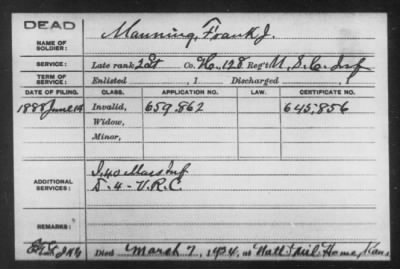 DEAD
NAME OF SOLDIER: Manning, Frank J.
SERVICE: Late rank 2 Lt Co. H, 128 Reg't U. S. C. Inf
TERM OF SERVICE: Enlisted , 1 Discharged , 1
DATE OF FILING. CLASS. APPLICATION NO. LAW. CERTIFICATE NO.
1888 June 14 Invalid, 659,862 645,856
Widow,
Minor,
ADDITIONAL SERVICES: I. 40 Mass Inf
D-4-V.R.C.
REMARKS:
Died March 7, 1904, at Nat'l Mil. Home, Kans